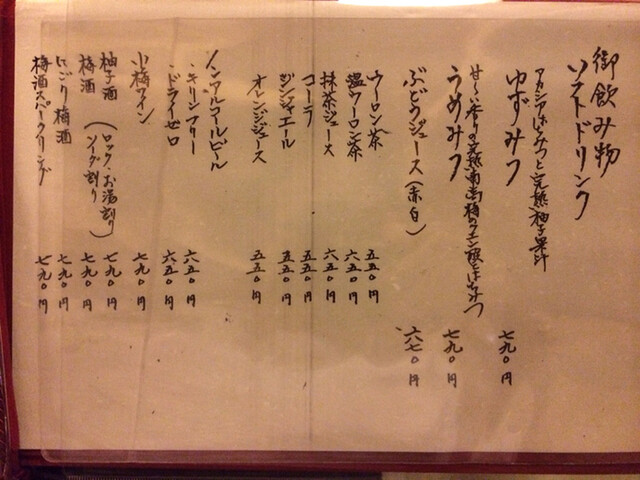 御飲み物
ソフトドリンク
アカシアはちみつと完熟柚子果汁
ゆずみつ 七九〇円
甘〜い香りの完熟南高梅のクエン酸とはちみつ
うめみつ 七九〇円
ぶどうジュース(赤白) 六八〇円
ウーロン茶 五五〇円
温ウーロン茶 六五〇円
抹茶ジュース 六五〇円
コーラ 五五〇円
ジンジャエール 五五〇円
オレンジジュース 五五〇円
ノンアルコールビール
・キリンフリー 六五〇円
・ドライゼロ 六五〇円
小梅ワイン 七九〇円
柚子酒 (ロック・お湯割り 七九〇円
梅酒 ソーダ割り) 七九〇円
にごり梅酒 七九〇円
梅酒スパークリング 七九〇円